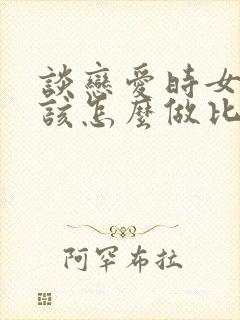 談戀愛時女
該怎麼做比
阿罕布拉